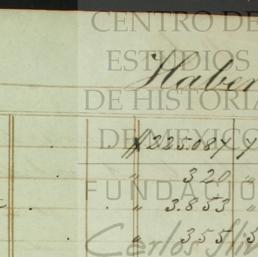 CENTRO DE
ESTUDIOS
Haber
DE HISTORIA
DE MEXICO
$225.084
" 320 "
FUNDACIÓ
" 3.853 "
Carlos Sli
" 355